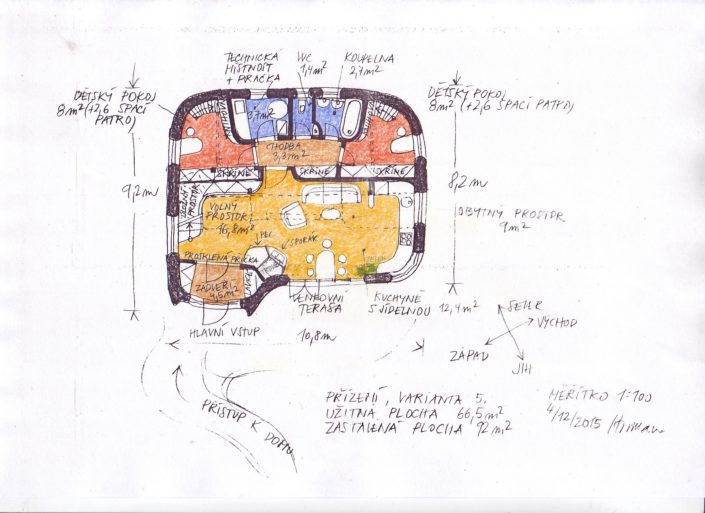 TECHNICKÁ
MÍSTNOST
+ PRAČKA
WC
1,4m²
KOUPELNA
2,7m²
DĚTSKÝ POKOJ
8m² (+2,6 SPACÍ
PATRO)
DĚTSKÝ POKOJ
8m² (+2,6 SPACÍ PATRO)
KNIHOVNA
3,7m²
CHODBA
3,3m²
SKŘÍNĚ
SKŘÍNĚ
SKŘÍNĚ
9,2m
8,2m
VOLNÝ
PROSTOR
16,8m²
OBYTNÝ PROSTOR
9m²
PEC
SPORÁK
PROSKLENÁ PŘÍČKA
ZÁDVEŘÍ
4,6m²
LAVICE
VENKOVNÍ
TERASA
KUCHYNĚ
S JÍDELNOU 12,4m²
HLAVNÍ VSTUP
10,8m
SEVER
VÝCHOD
ZÁPAD
JIH
PŘÍSTUP K DOMU
PŘÍZEMÍ, VARIANTA 5.
UŽITNÁ PLOCHA 66,5m²
ZASTAVĚNÁ PLOCHA 92m²
MĚŘÍTKO 1:100
4/12/2015